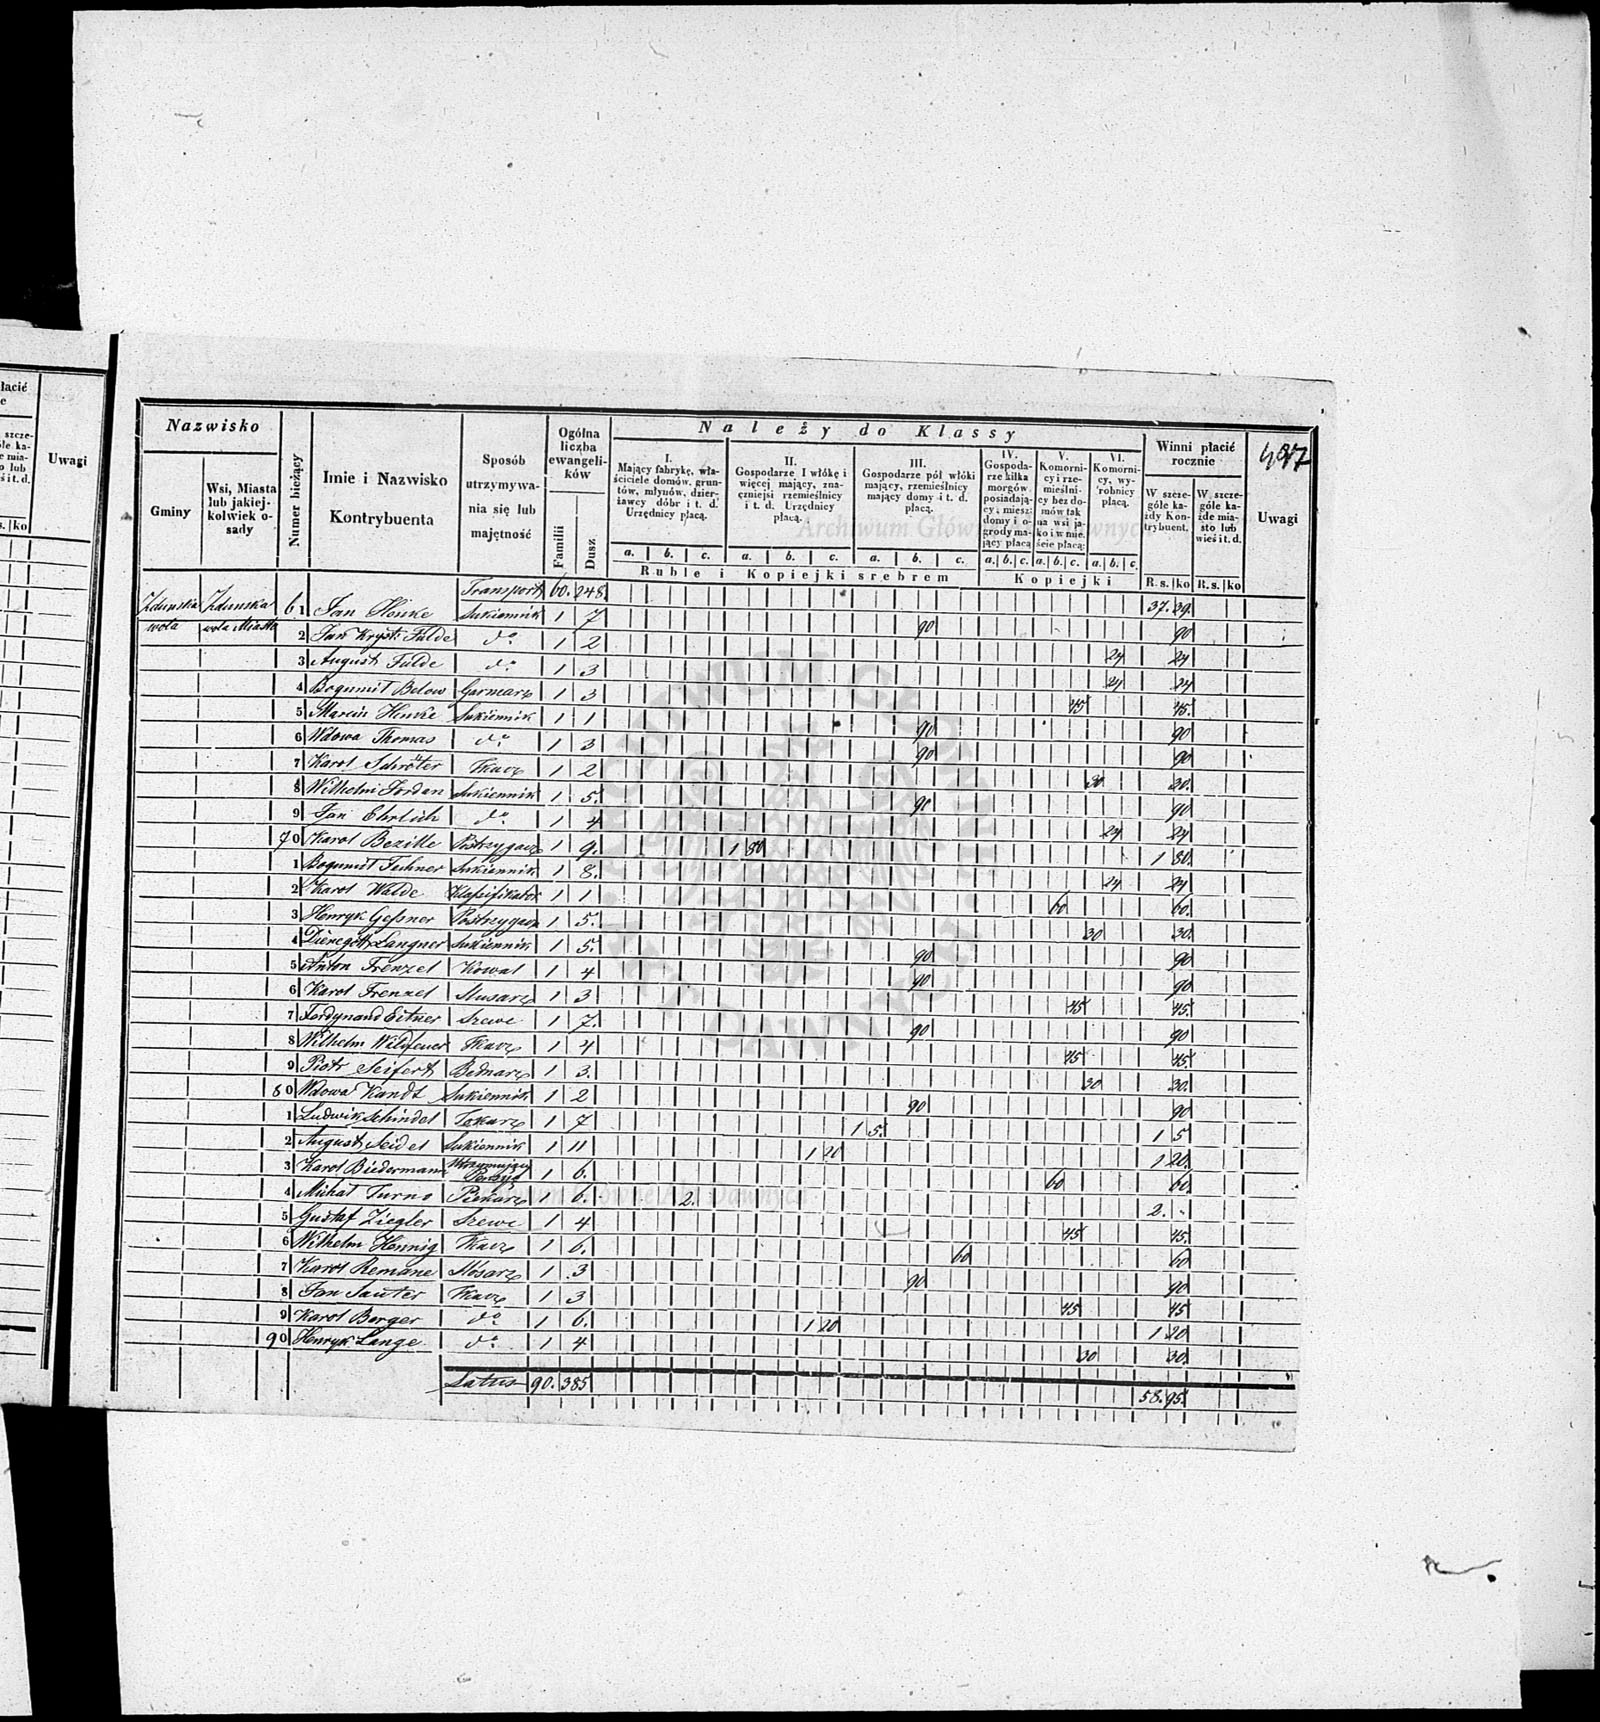 łacić
e
szcze-
óle ka-
e mia-
o lub
ś i t. d.
s. ko
Uwagi
Nazwisko
Gminy
Wsi, Miasta lub jakiej-kolwiek o-sady
Numer bieżący
Imie i Nazwisko Kontrybuenta
Sposób utrzymywa-nia się lub majętność
Ogólna liczba ewangeli-ków
Familii
Dusz
Należy do Klassy
I. Mający fabrykę, wła-ściciele domów, grun-tów, młynów, dzier-żawcy dóbr i t. d. Urzędnicy płacą.
II. Gospodarze I włókę i więcej mający, zna-czniejsi rzemieślnicy i t. d. Urzędnicy płacą.
III. Gospodarze pół włóki mający, rzemieślnicy mający domy i t. d. płacą.
IV. Gospoda-rze kilka morgów posiadają-cy, miesz. domy i o-grody ma-jący płacą
V. Komorni-cy i rze-mieślni-cy bez do-mów tak na wsi ja-ko i w mie-ście płacą.
VI. Komorni-cy, wy-robnicy płacą.
Winni płacić rocznie
W szcze-góle ka-żdy Kon-trybuent.
W szcze-góle ka-żde mia-sto lub wieś i t. d.
Uwagi
a. b. c. a. b. c. a. b. c. a. b. c. a. b. c. a. b. c.
Ruble i Kopiejki srebrem
Kopiejki
R. s. ko R. s. ko
Transport 60. 248. 37. 29.
Zduńska Zduńska 61 Jan Henke Sukiennik 1 7 90 90
wola wola Miasto 2 Jan Kryst: Fulde do 1 2 24 24
3 August Fulde do 1 3 24 24
4 Bogumił Below Garncarz 1 3 45 45.
5 Marcin Henke Sukiennik 1 1 90 90
6 Wdowa Thomas do 1 3 90 90
7 Karol Schröter Tkacz 1 2 30 30.
8 Wilhelm Jordan Sukiennik 1 5. 90 90
9 Jan Ehrlich do 1 4 24 24
70 Karol Postrzygacz 1 9. 1 80 1 80.
1 Bogumił Sukiennik 1 8. 24 24
2 Karol Walde Klassifikator 1 1 60 60.
3 Henryk Gessner Postrzygacz 1 5. 30 30.
4 Langner Sukiennik 1 5. 90 90
5 Anton Frenzel Kowal 1 4 90 90
6 Karol Frenzel Slusarz 1 3 45 45.
7 Ferdynand Eitner Szewc 1 7. 90 90
8 Wilhelm Wildfeuer Tkacz 1 4 45 45.
9 Piotr Seifert Bednarz 1 3. 30 30.
80 Wdowa Kandt Sukiennik 1 2 90 90
1 Ludwik Schindel Tokarz 1 7 1 5. 1 5
2 August Seidel Sukiennik 1 11 1 20 1 20.
3 Karol Biedermann 1 6. 60 60.
4 Michał Turno Piekarz 1 6. 2. 2. -
5 Gustaf Ziegler Szewc 1 4 45 45.
6 Wilhelm Hennig Tkacz 1 6. 60 60
7 Karol Remane Slósarz 1 3 90 90
8 Jan Sauter Tkacz 1 3 45 45
9 Karol Berger do 1 6. 1 20 1 20
90 Henryk Lange do 1 4 30 30.
Latus 90. 385 58. 95.